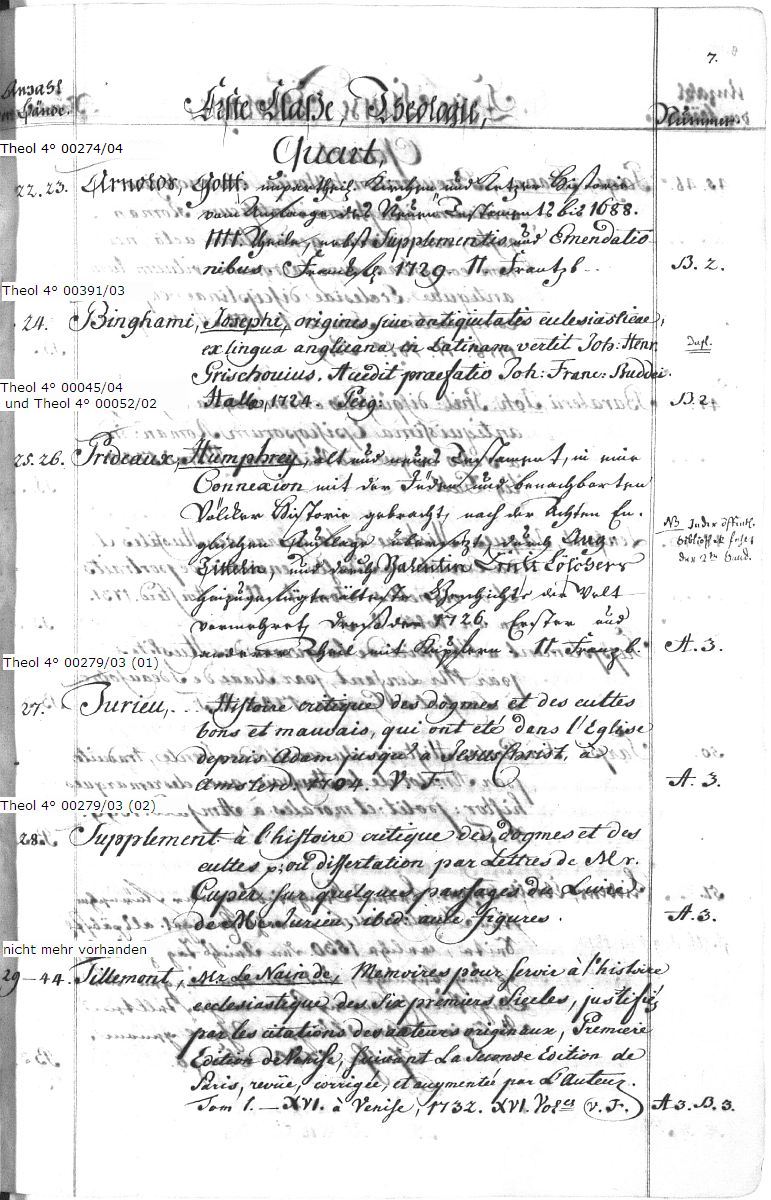 7.
Anzahl
der Bände.
Erste Claße, Theologie,
Nummern
Quart,
Theol 4° 00274/04
22. 23. Arnolds, Gottf: unparthei. Kirchen und Ketzer Historie
vom Anfange des Neuen Testaments bis 1688.
IIII Theile, nebst Supplementis und Emendatio
nibus. Franckf. 1729. II. Frantzb.. B. 2.
Theol 4° 00391/03
24. Binghami, Josephi, origines sive antiquitates ecclesiasticae,
ex lingua anglicana in Latinam vertit Joh: Henr. Dupl.
Grischouius. Accedit praefatio Joh: Franc: Buddei.
Halle, 1724. Perg. B 2.
Theol 4° 00045/04
und Theol 4° 00052/02
25. 26. Prideaux, Humphrey, alt und neues Testament, in eine
Connexion mit der Juden und benachbarten
Völcker Historie gebracht, nach der Achten En-
glischen Auflage übersetzt durch Aug. NB In der öffentl.
Bibliothek fehlt
der 2te Band.
Titteln, und durch Valentin Ernst Löschers
hinzugefügte älteste Geschichte der Welt
vermehret, Dresden 1726. Erster und
anderer Theil mit Kupffern. II Franzb. A. 3.
Theol 4° 00279/03 (01)
27. Jurieu, .. Histoire critique des dogmes et des cultes
bons et mauvais, qui ont eté dans l'Eglise
depuis Adam jusqu'à Jesus Christ, à
Amsterd. 1704. V. F. A. 3.
Theol 4° 00279/03 (02)
28. Supplement à l'histoire critique des dogmes et des
cultes p: ou dissertation par Lettres de Mr.
Cuper sur quelques passages du Livre
de Mr. Jurieu, ibid: avec figures. A. 3.
nicht mehr vorhanden
29-44. Tillemont, Mr. Le Nain de, Memoires pour servir à l'histoire
ecclesiastique des Six premiers Siecles, justifiéz
par les citations des auteurs originaux, Premiere
Edition de Venise, suivant La Seconde Edition de
Paris, revüe, corrigée, et augmentée par L'auteur.
Tom I. — XVI. à Venise, 1732. XVI. Voles (v. F.) A 3. B. 3.